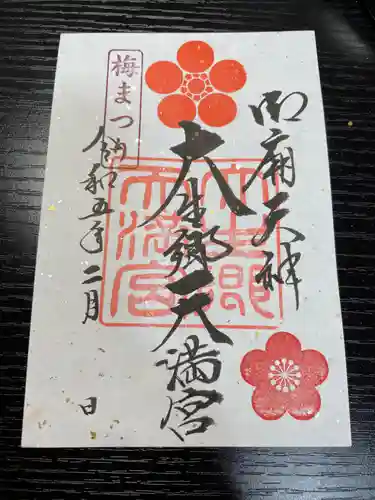 御廟天神
大生郷天満宮
大生郷天満宮
梅まつり
令和五年二月
日